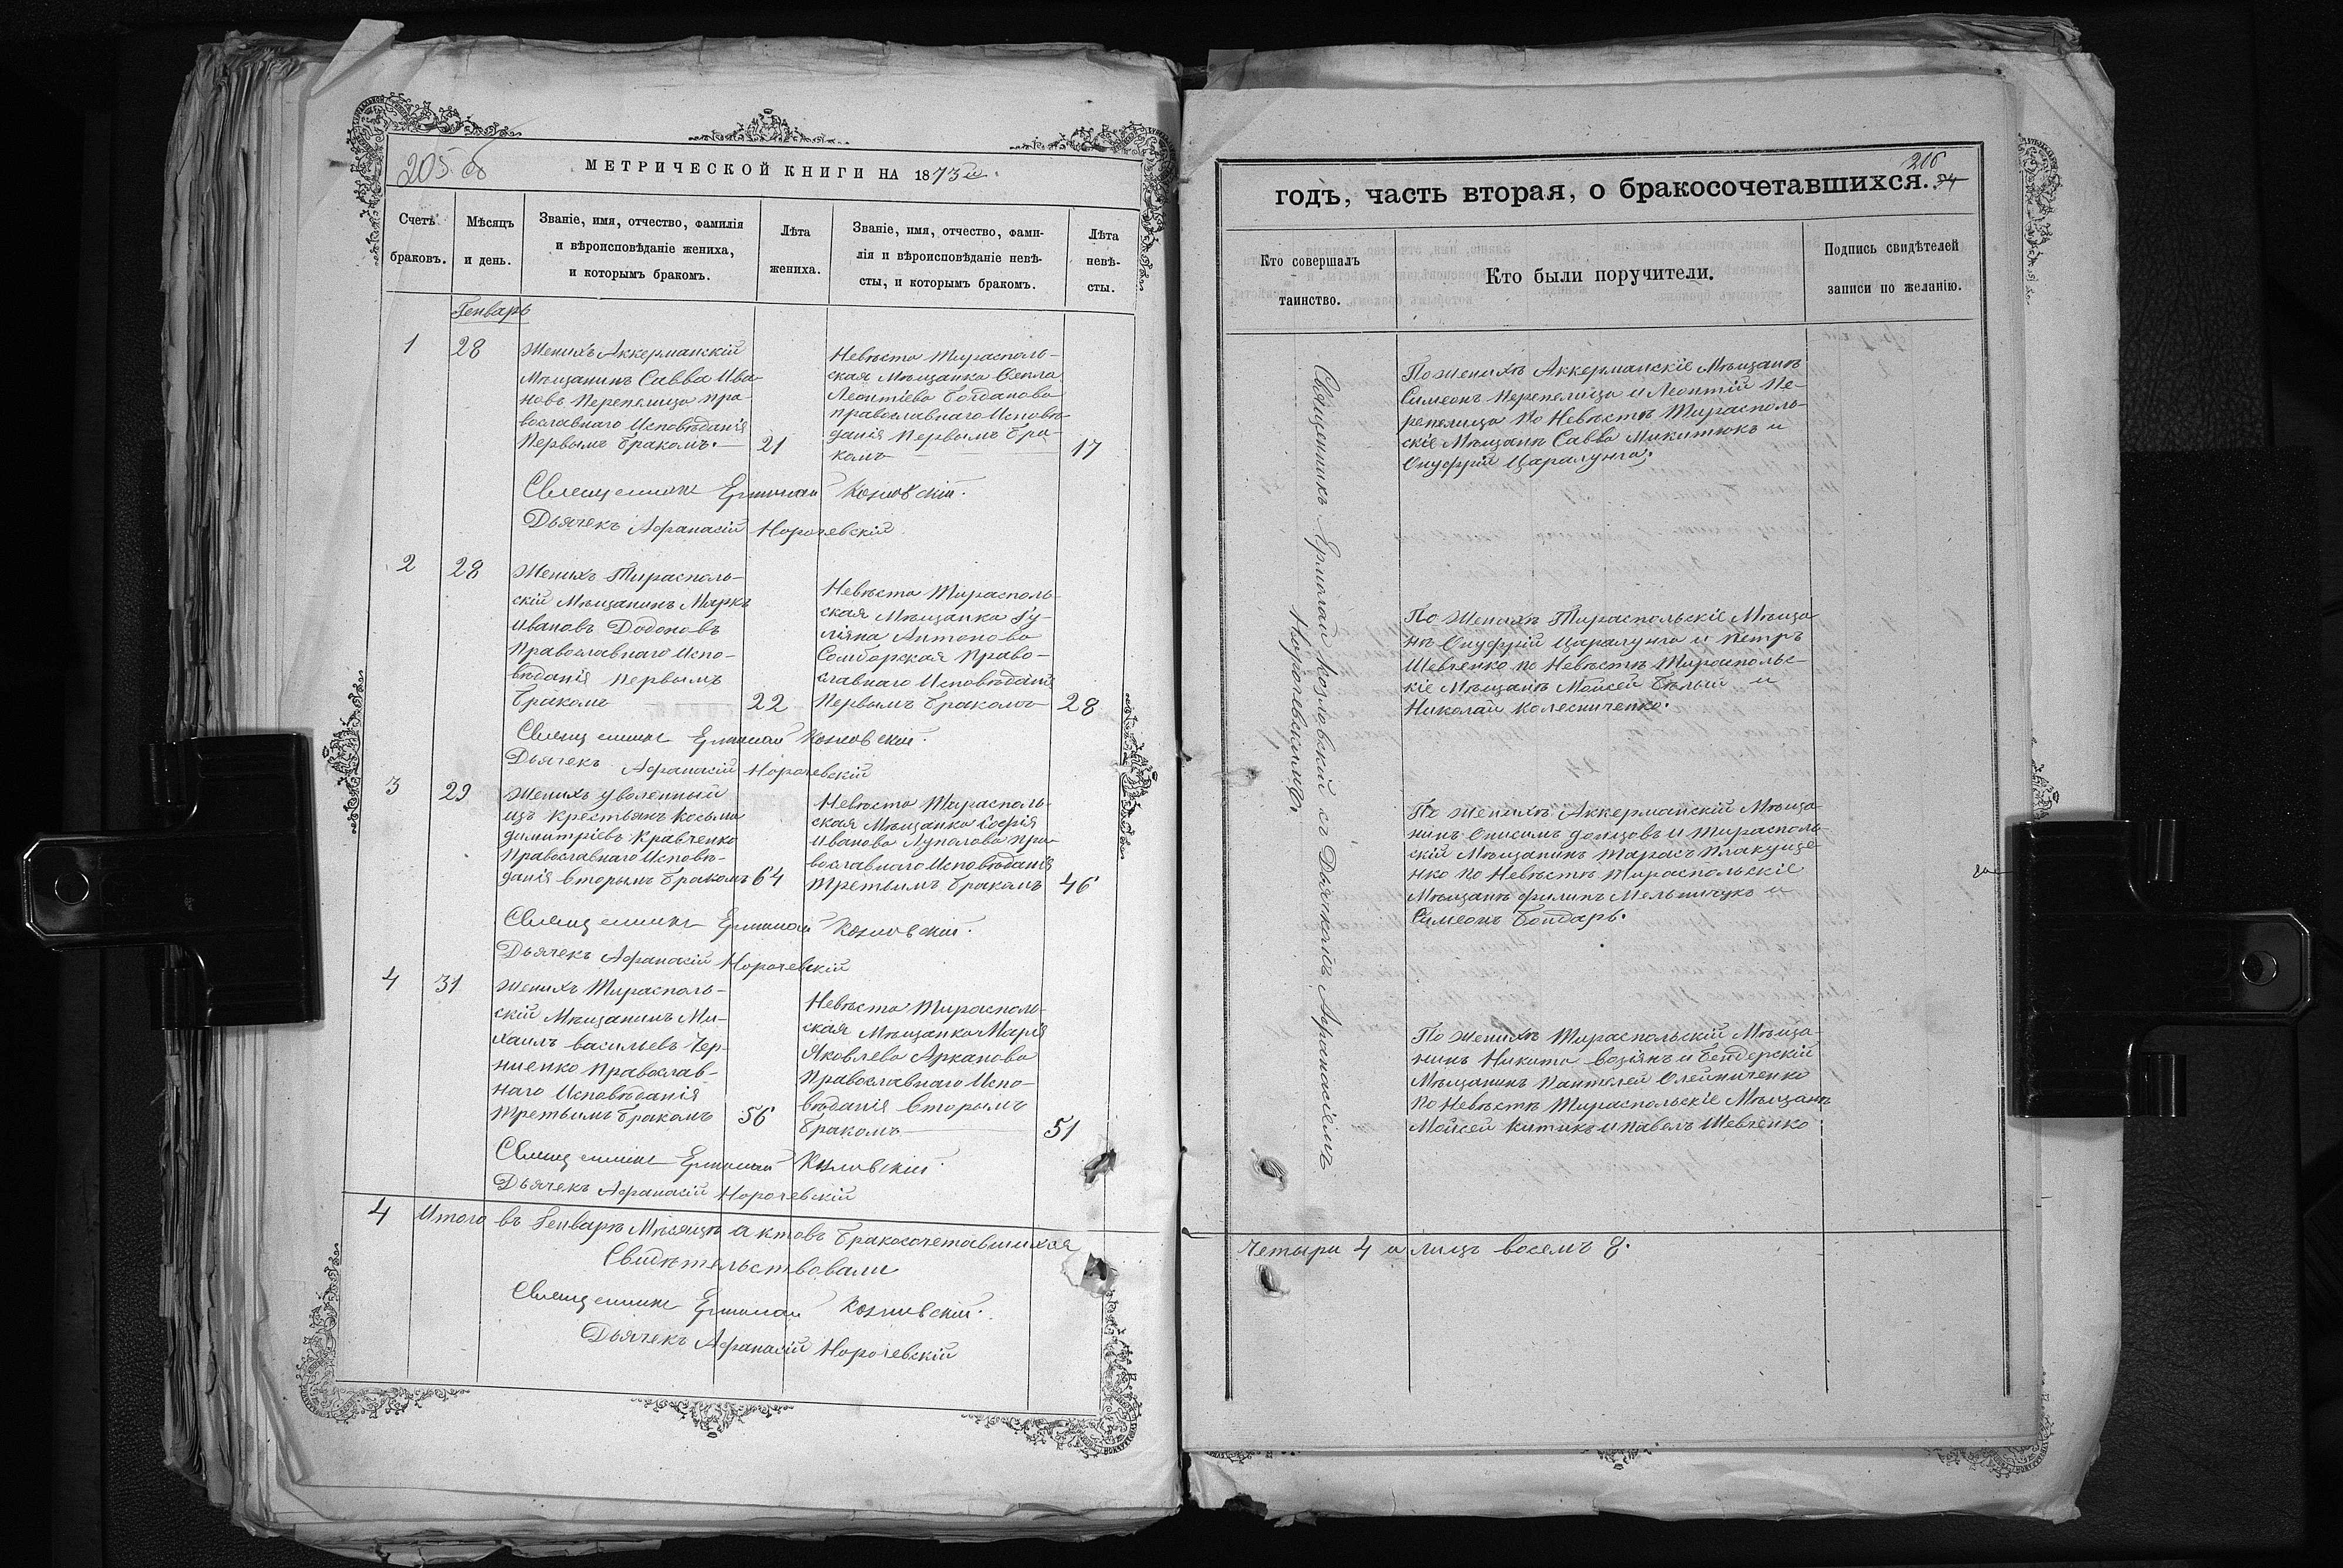 205 об
МЕТРИЧЕСКОЙ КНИГИ НА 1873й.
Счетъ браковъ.
Мѣсяцъ и день.
Званіе, имя, отчество, фамилія
и вѣроисповѣданіе жениха,
и которымъ бракомъ.
Лѣта
жениха.
Званіе, имя, отчество, фами-
лія и вѣроисповѣданіе невѣ-
сты, и которымъ бракомъ.
Лѣта
невѣ-
сты.
Генварь
1
28
Женихъ Аккерманскій
Мѣщанинъ Савва Ива
новъ Перепелица пра
вославнаго Исповѣданія
Первымъ бракомъ.
21
Невѣста Тирасполь-
ская Мѣщанка Ѳекла
Леонтіева Богданова
православнаго Исповѣ-
данія Первымъ бра-
комъ
17
Священникъ Ермолай Козловскій.
Дьячекъ Афанасій Норочевскій
2
28
Женихъ Тирасполь-
скій Мѣщанинъ Маркъ
Ивановъ Додоновъ
Православнаго Испо-
вѣданія Первымъ
бракомъ
22
Невѣста Тирасполь-
ская Мѣщанка Іу-
ліяна Антонова
Самборская Право-
славнаго Исповѣданія
Первымъ бракомъ
28
Священникъ Ермолай Козловскій.
Дьячекъ Афанасій Норочевскій
3
29
Женихъ уволенный
изъ крестьянъ Косьма
Димитріевъ Кравченко
Православнаго Исповѣ-
данія вторымъ бракомъ
64
Невѣста Тирасполь-
ская Мѣщанка Софія
Иванова Луполова пра-
вославнаго Исповѣданія
Третьимъ бракомъ
46
Священникъ Ермолай Козловскій.
Дьячекъ Афанасій Норочевскій
4
31
Женихъ Тирасполь-
скій Мѣщанинъ Ми-
хаилъ Васильевъ Чер-
ниенко Православ-
наго Исповѣданія
Третьимъ бракомъ
56
Невѣста Тирасполь-
ская Мѣщанка Марія
Яковлева Арканова
Православнаго Испо-
вѣданія вторымъ
бракомъ
51
Священникъ Ермолай Козловскій.
Дьячекъ Афанасій Норочевскій
4 Итого въ Генварѣ Мѣсяцѣ актовъ бракосочетавшихся
Свидѣтельствовали
Священникъ Ермолай Козловскій.
Дьячекъ Афанасій Норочевскій
годъ, часть вторая, о бракосочетавшихся.
Кто совершалъ
таинство.
Кто были поручители.
Подпись свидѣтелей
записи по желанію.
Священникъ Ермолай Козловскій съ Дьячкомъ Афанасіемъ
Норочевскимъ.
По женихѣ Аккерманскіе Мѣщанѣ
Симеонъ Перепелица и Леонтій Пе-
репелица По Невѣстѣ Тирасполь-
скіе Мѣщанѣ Савва Микитюкъ и
Онуфрій Царалунга.
По Женихѣ Тираспольскіе Мѣща
нѣ Онуфрій Царалунга и Петръ
Шевченко по Невѣстѣ Тираспольс-
кіе Мѣщанѣ Моисей Бѣлый и
Николай Колесниченко.
По женихѣ Аккерманскій Мѣща-
нинъ Онисимъ Донцовъ и Тирасполь-
скій Мѣщанинъ Тарасъ Плакуще
нко По Невѣстѣ Тираспольскіе
Мѣщанѣ Филипъ Мельничукъ и
Симеонъ Бондарь.
По женихѣ Тираспольскій Мѣща-
нинъ Никита Возіянъ и Бендерскій
Мѣщанинъ Пантелей Олейниченко
По Невѣстѣ Тираспольскіе Мѣщанѣ
Мойсей Китикъ и Павелъ Шевченко
Четыри 4 а лицъ восемъ 8.